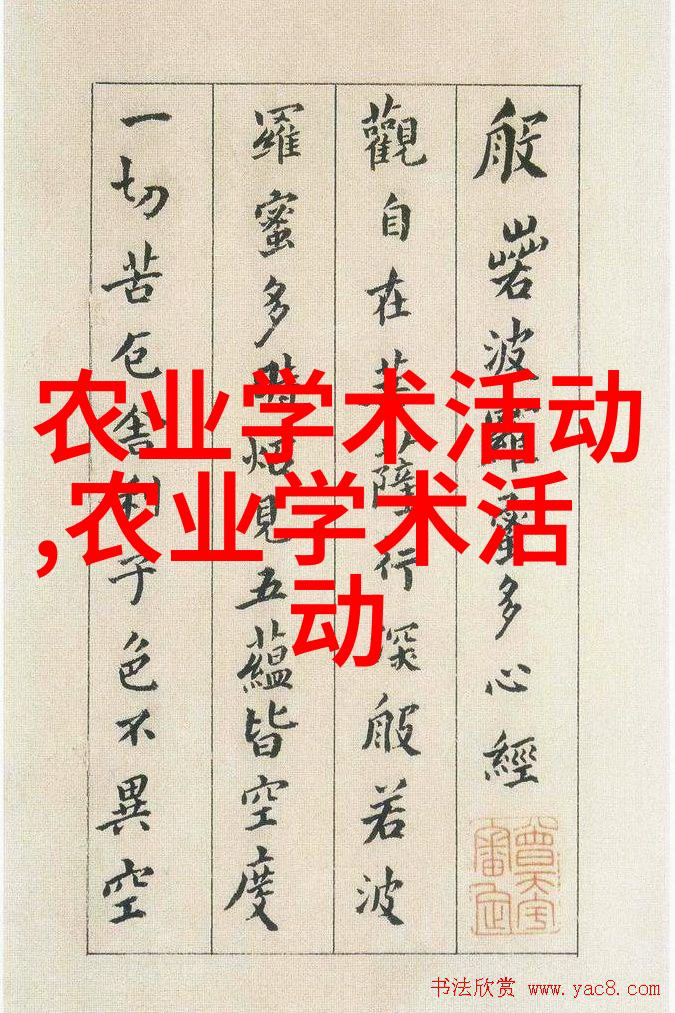 般若波羅蜜多心經
觀自在菩薩行深般若波
羅蜜多時照見五蘊皆空度
一切苦厄舍利子色不異空
农业学术活动
,农业学术活
动
书法欣赏 www.yac8.com